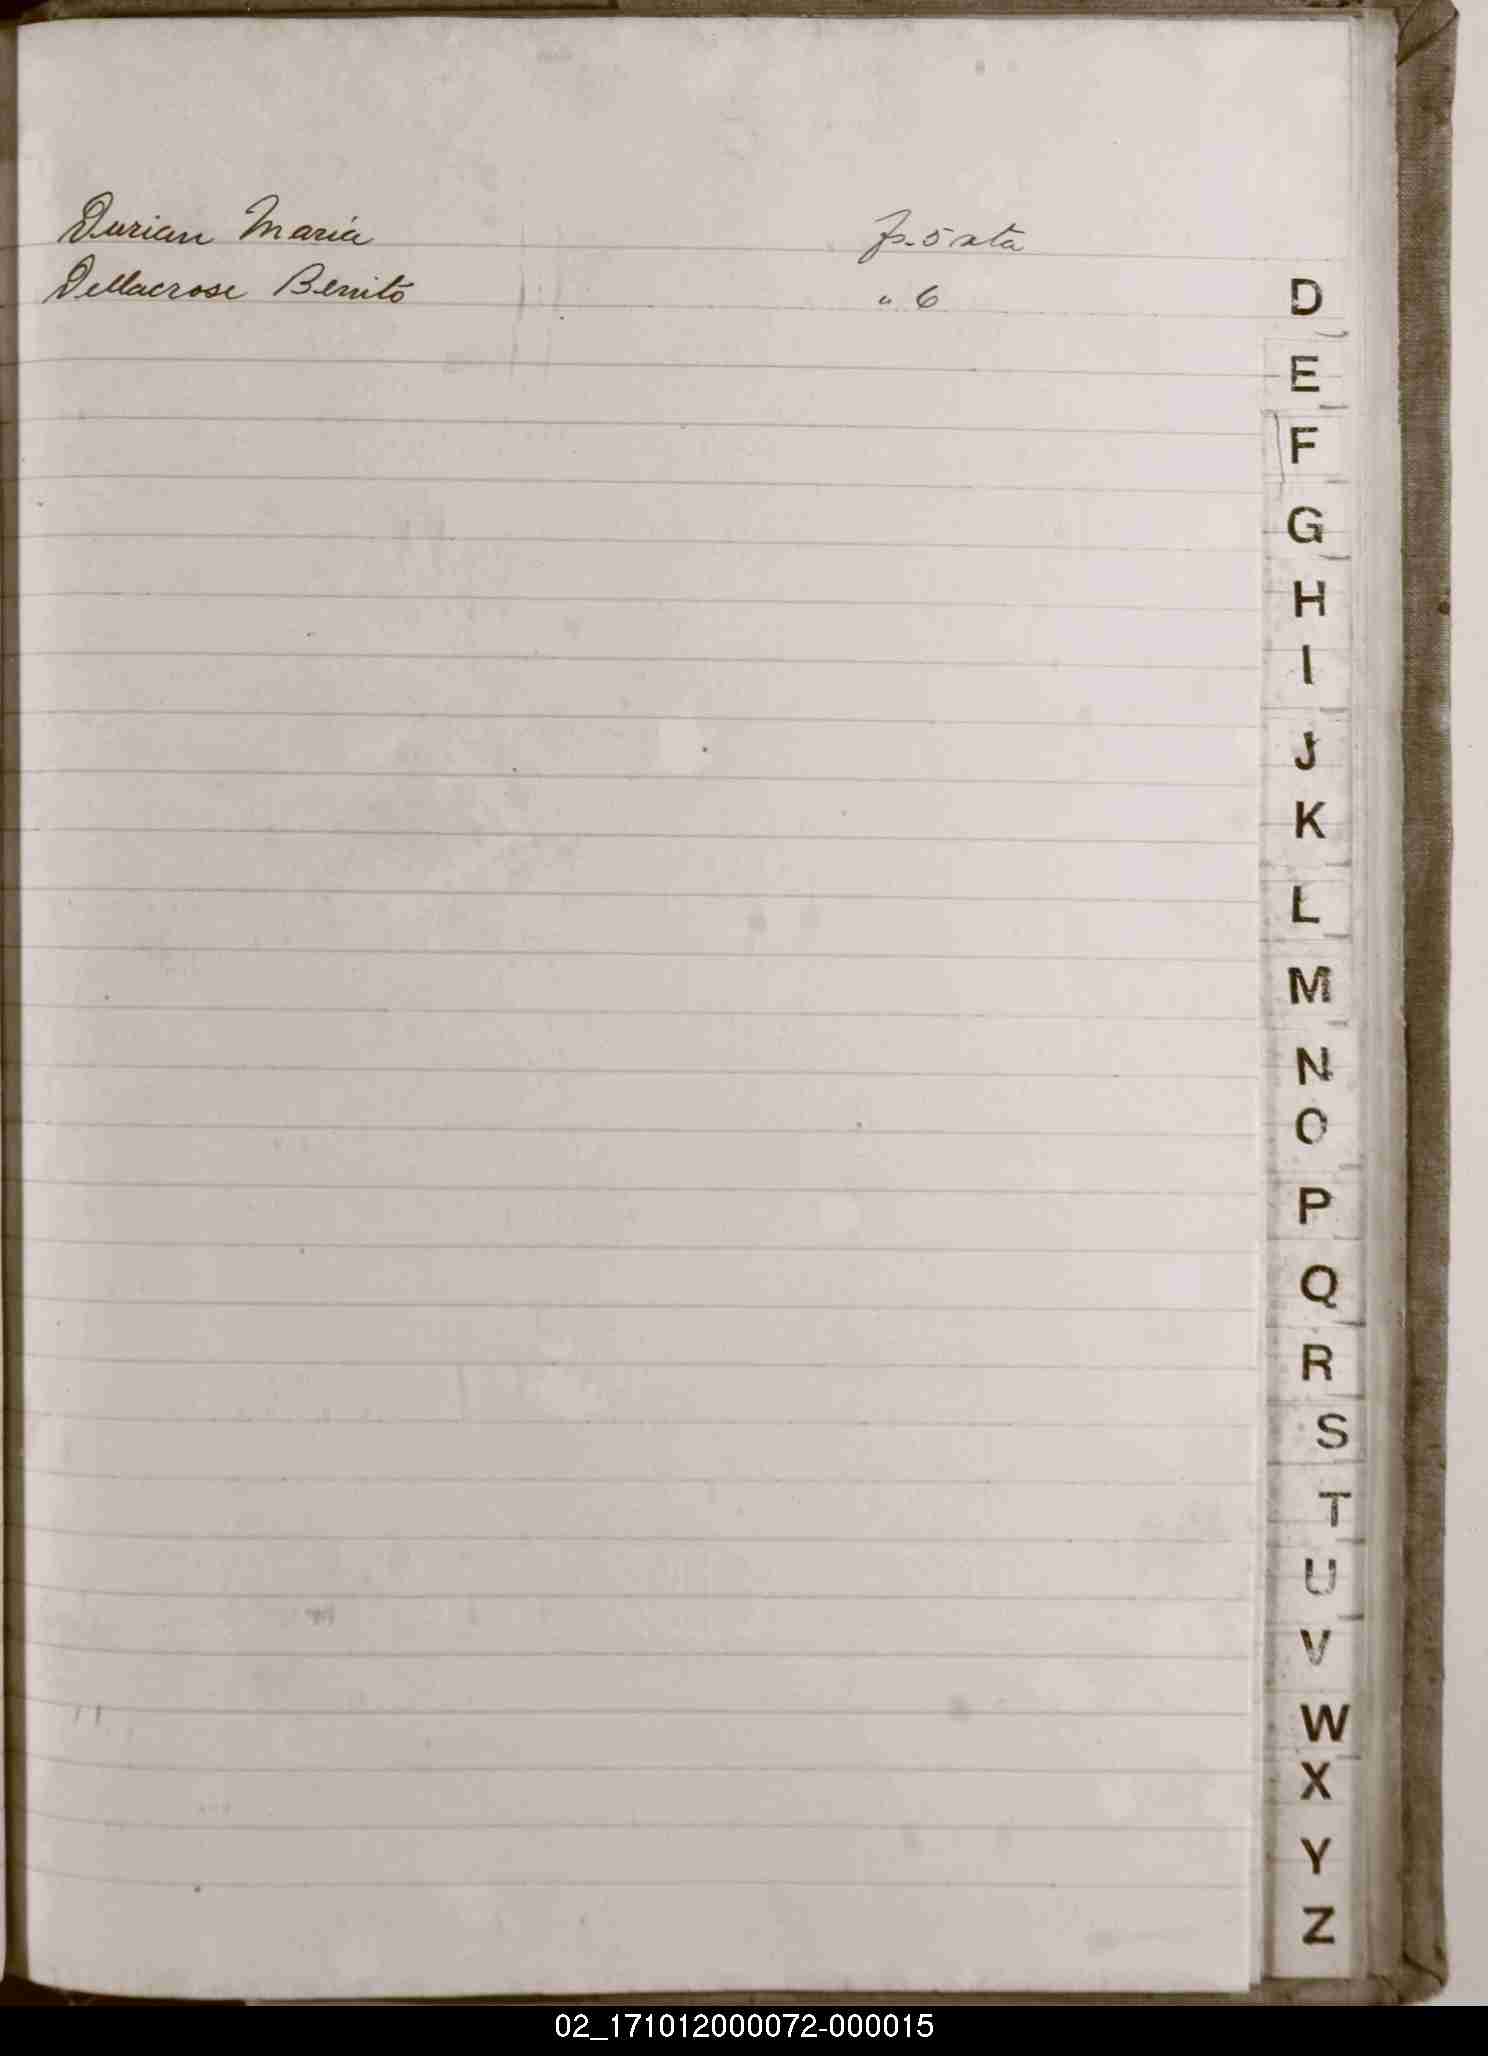 Durian María
fs. 5 vta
Dellacrose Benito
" 6
D
E
F
G
H
I
J
K
L
M
N
O
P
Q
R
S
T
U
V
W
X
Y
Z
02_171012000072-000015